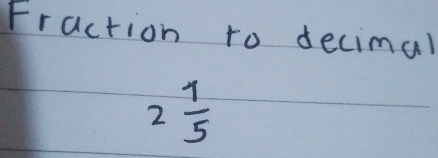 Fraction to decimal
2 1/5